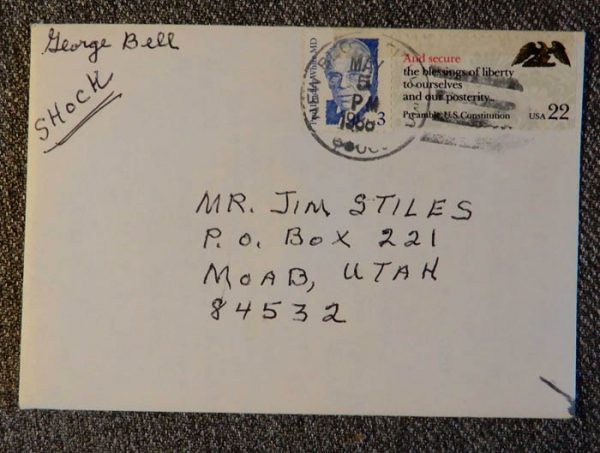 George Bell
SHOCK
Paul Dudley White MD
3
MAY
5
PM
1988
And secure
the blessings of liberty
to ourselves
and our posterity...
Preamble, U.S. Constitution
USA 22
MR. JIM STILES
P.O. BOX 221
MOAB, UTAH
84532